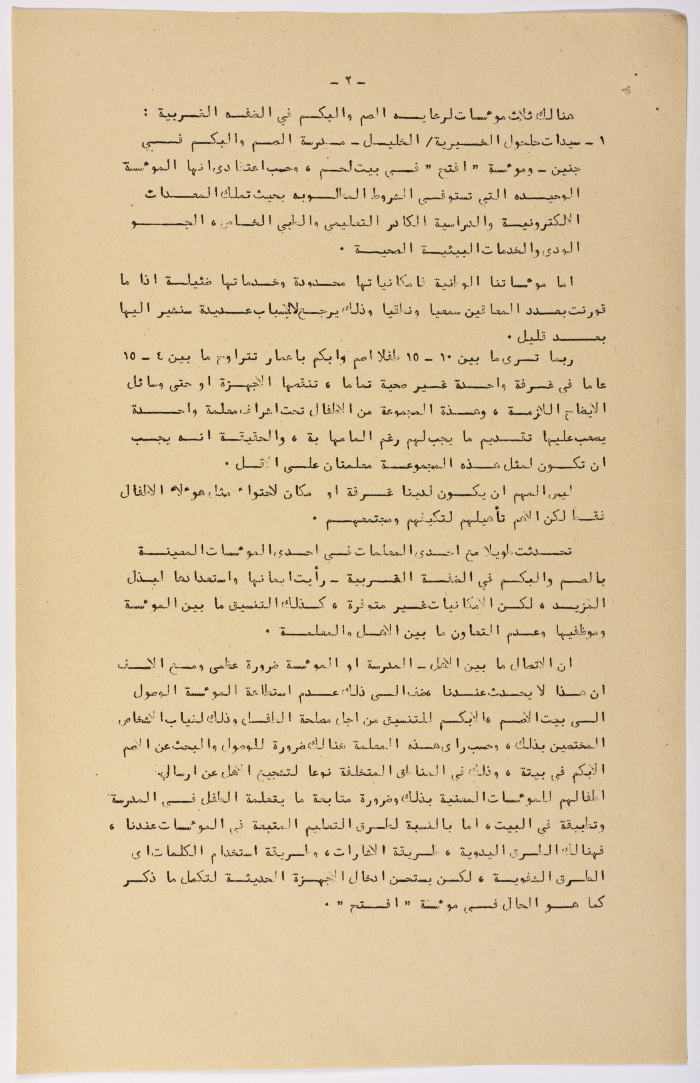 - ٢ -
هنالك ثلاث مؤسسات لرعايه الصم والبكم في الضفه الغربية :
١ - سيدات حلحول الخيرية / الخليل - مدرسة الصم والبكم في
جنين - ومؤسسة " افتح " في بيت لحم ، وحسب اعتقادي انها المؤسسة
الوحيده التي تستوفي الشروط المطلوبه بحيث تملك المعدات
الالكترونية والدراسية الكادر التعليمي والطبي الخاص ، الجو
الودي والخدمات البيئية الصحية .
اما مؤسساتنا الوطنية فامكانياتها محدودة وخدماتها ضئيلة اذا ما
قورنت بعدد المعاقين سمعيا ونطقيا وذلك يرجع لاسباب عديدة سنشير اليها
بعد قليل .
ربما ترى ما بين ١٠ - ١٥ طفلا اصم وابكم باعمار تتراوح ما بين ٤ - ١٥
عاما في غرفة واحدة غير صحية تماما ، تنقصها الاجهزة او حتى وسائل
الايضاح اللازمة ، وهذه المجموعة من الاطفال تحت اشراف معلمة واحدة
يصعب عليها تقديم ما يجب لهم رغم المامها بة ، والحقيقة انه يجب
ان تكون لمثل هذه المجموعة معلمتان على الاقل .
ليس المهم ان يكون لدينا غرفة او مكان لاحتواء مثل هؤلاء الاطفال
فقط لكن الاهم تأهيلهم لتكيفهم ومجتمعهم .
تحدثت طويلا مع احدى المعلمات في احدى المؤسسات المعينة
بالصم والبكم في الضفة الغربية - رأيت ايمانها واستعدادها لبذل
المزيد ، لكن الامكانيات غير متوفرة ، كذلك التنسيق ما بين المؤسسة
وموظفيها وعدم التعاون ما بين الاهل والمعلمة .
ان الاتصال ما بين الاهل - المدرسة او المؤسسة ضرورة عظمى ومع الاسف
ان هذا لا يحدث عندنا ضف الى ذلك عدم استطاعة المؤسسة الوصول
الى بيت الاصم ، الابكم للتنسيق من اجل مصلحة الطفل وذلك لغياب الاشخاص
المختصين بذلك ، وحسب راى هذه المعلمة هنالك ضرورة للوصول والبحث عن الاصم
الابكم في بيتة ، وذلك في المناطق المتخلفة نوعا لتشجيع الاهل عن ارسال
اطفالهم للمؤسسات المعنية بذلك وضرورة متابعة ما يتعلمة الطفل في المدرسة
وتطبيقة في البيت ، اما بالنسبة لطرق التعليم المتبعة في المؤسسات عندنا ،
فهنالك الطرق اليدوية ، طريقة الاشارات ، وطريقة استخدام الكلمات اى
الطرق الشفوية ، لكن يستحسن ادخال الاجهزة الحديثة لتكمل ما ذكر
كما هو الحال في مؤسسة " افتح " .